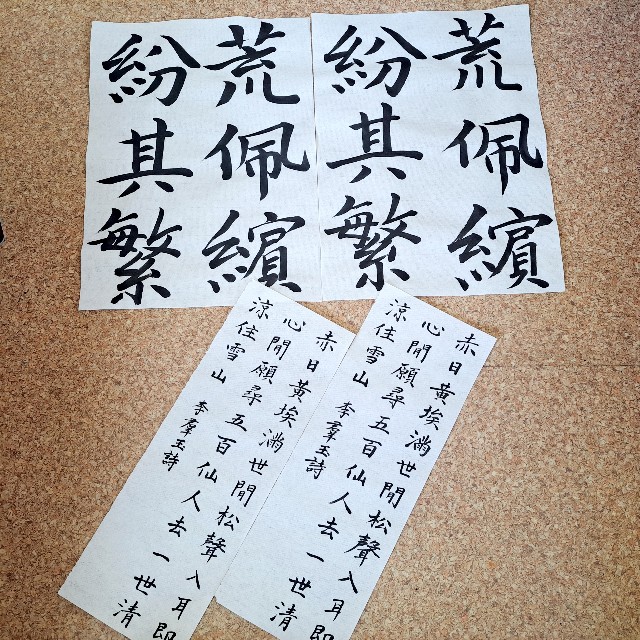 荒佩繽
紛其繁
荒佩繽
紛其繁
赤日黄埃満世間松聲入耳即
心閒願尋五百仙人去一世清
涼住雪山 李羣玉詩
赤日黄埃満世間松聲入耳即
心閒願尋五百仙人去一世清
涼住雪山 李羣玉詩